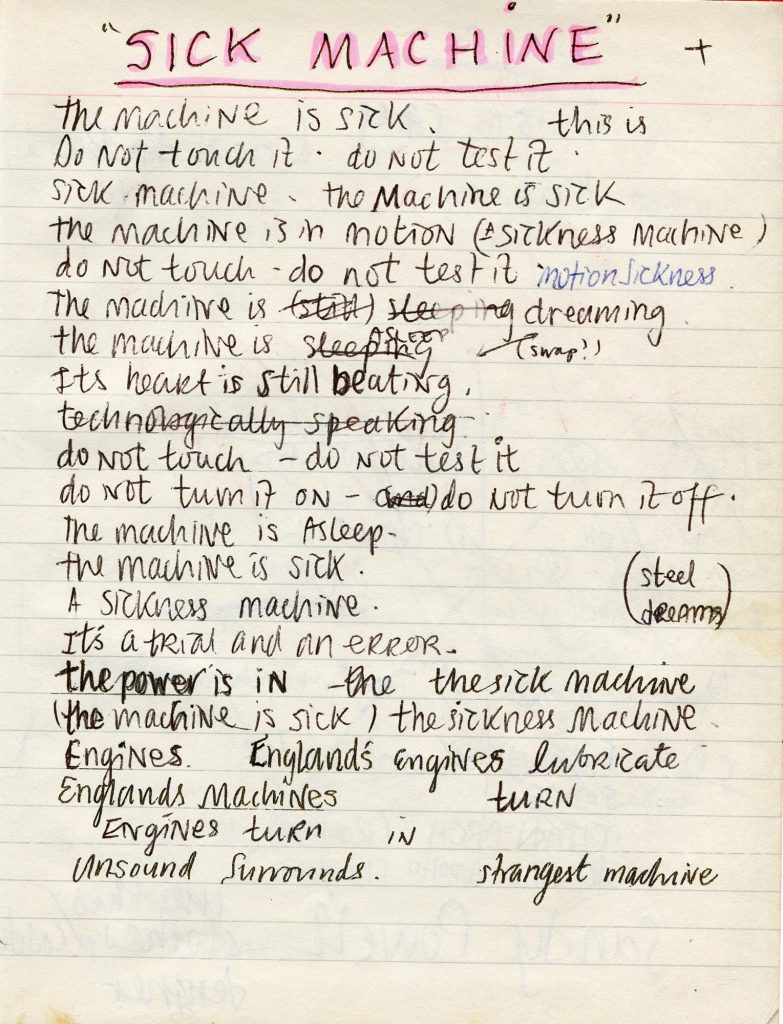 "SICK MACHINE" +
the machine is sick. this is
Do Not touch it. do not test it.
sick machine. the Machine is sick
the machine is in motion (A sickness machine)
do not touch - do not test it motion sickness.
The machine is (still) sleeping dreaming.
the machine is sleeping ASLEEP (swap?)
Its heart is still beating,
technologically speaking.
do not touch - do not test it
do not turn it on - (and) do not turn it off.
The machine is Asleep -
the machine is sick.
A sickness machine.
(steel dreams)
It's a trial and an error.
the power is in the the sick machine
(the machine is sick) the sickness Machine.
Engines. England's engines lubricate
Englands Machines turn
Engines turn in
Unsound Surrounds. strangest machine